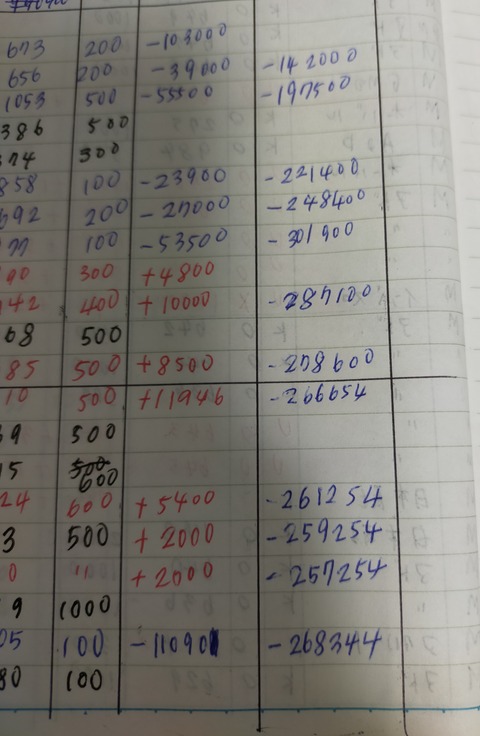 673 200 -103000
656 200 -39000 -142000
1053 500 -55500 -197500
386 500
74 300
858 100 -23900 -221400
692 200 -27000 -248400
77 100 -53500 -301900
90 300 +4800
142 400 +10000 -287100
68 500
85 500 +8500 -278600
10 500 +11946 -266654
39 500
5 600
24 600 +5400 -261254
3 500 +2000 -259254
0 " +2000 -257254
9 1000
05 100 -11090 -268344
80 100